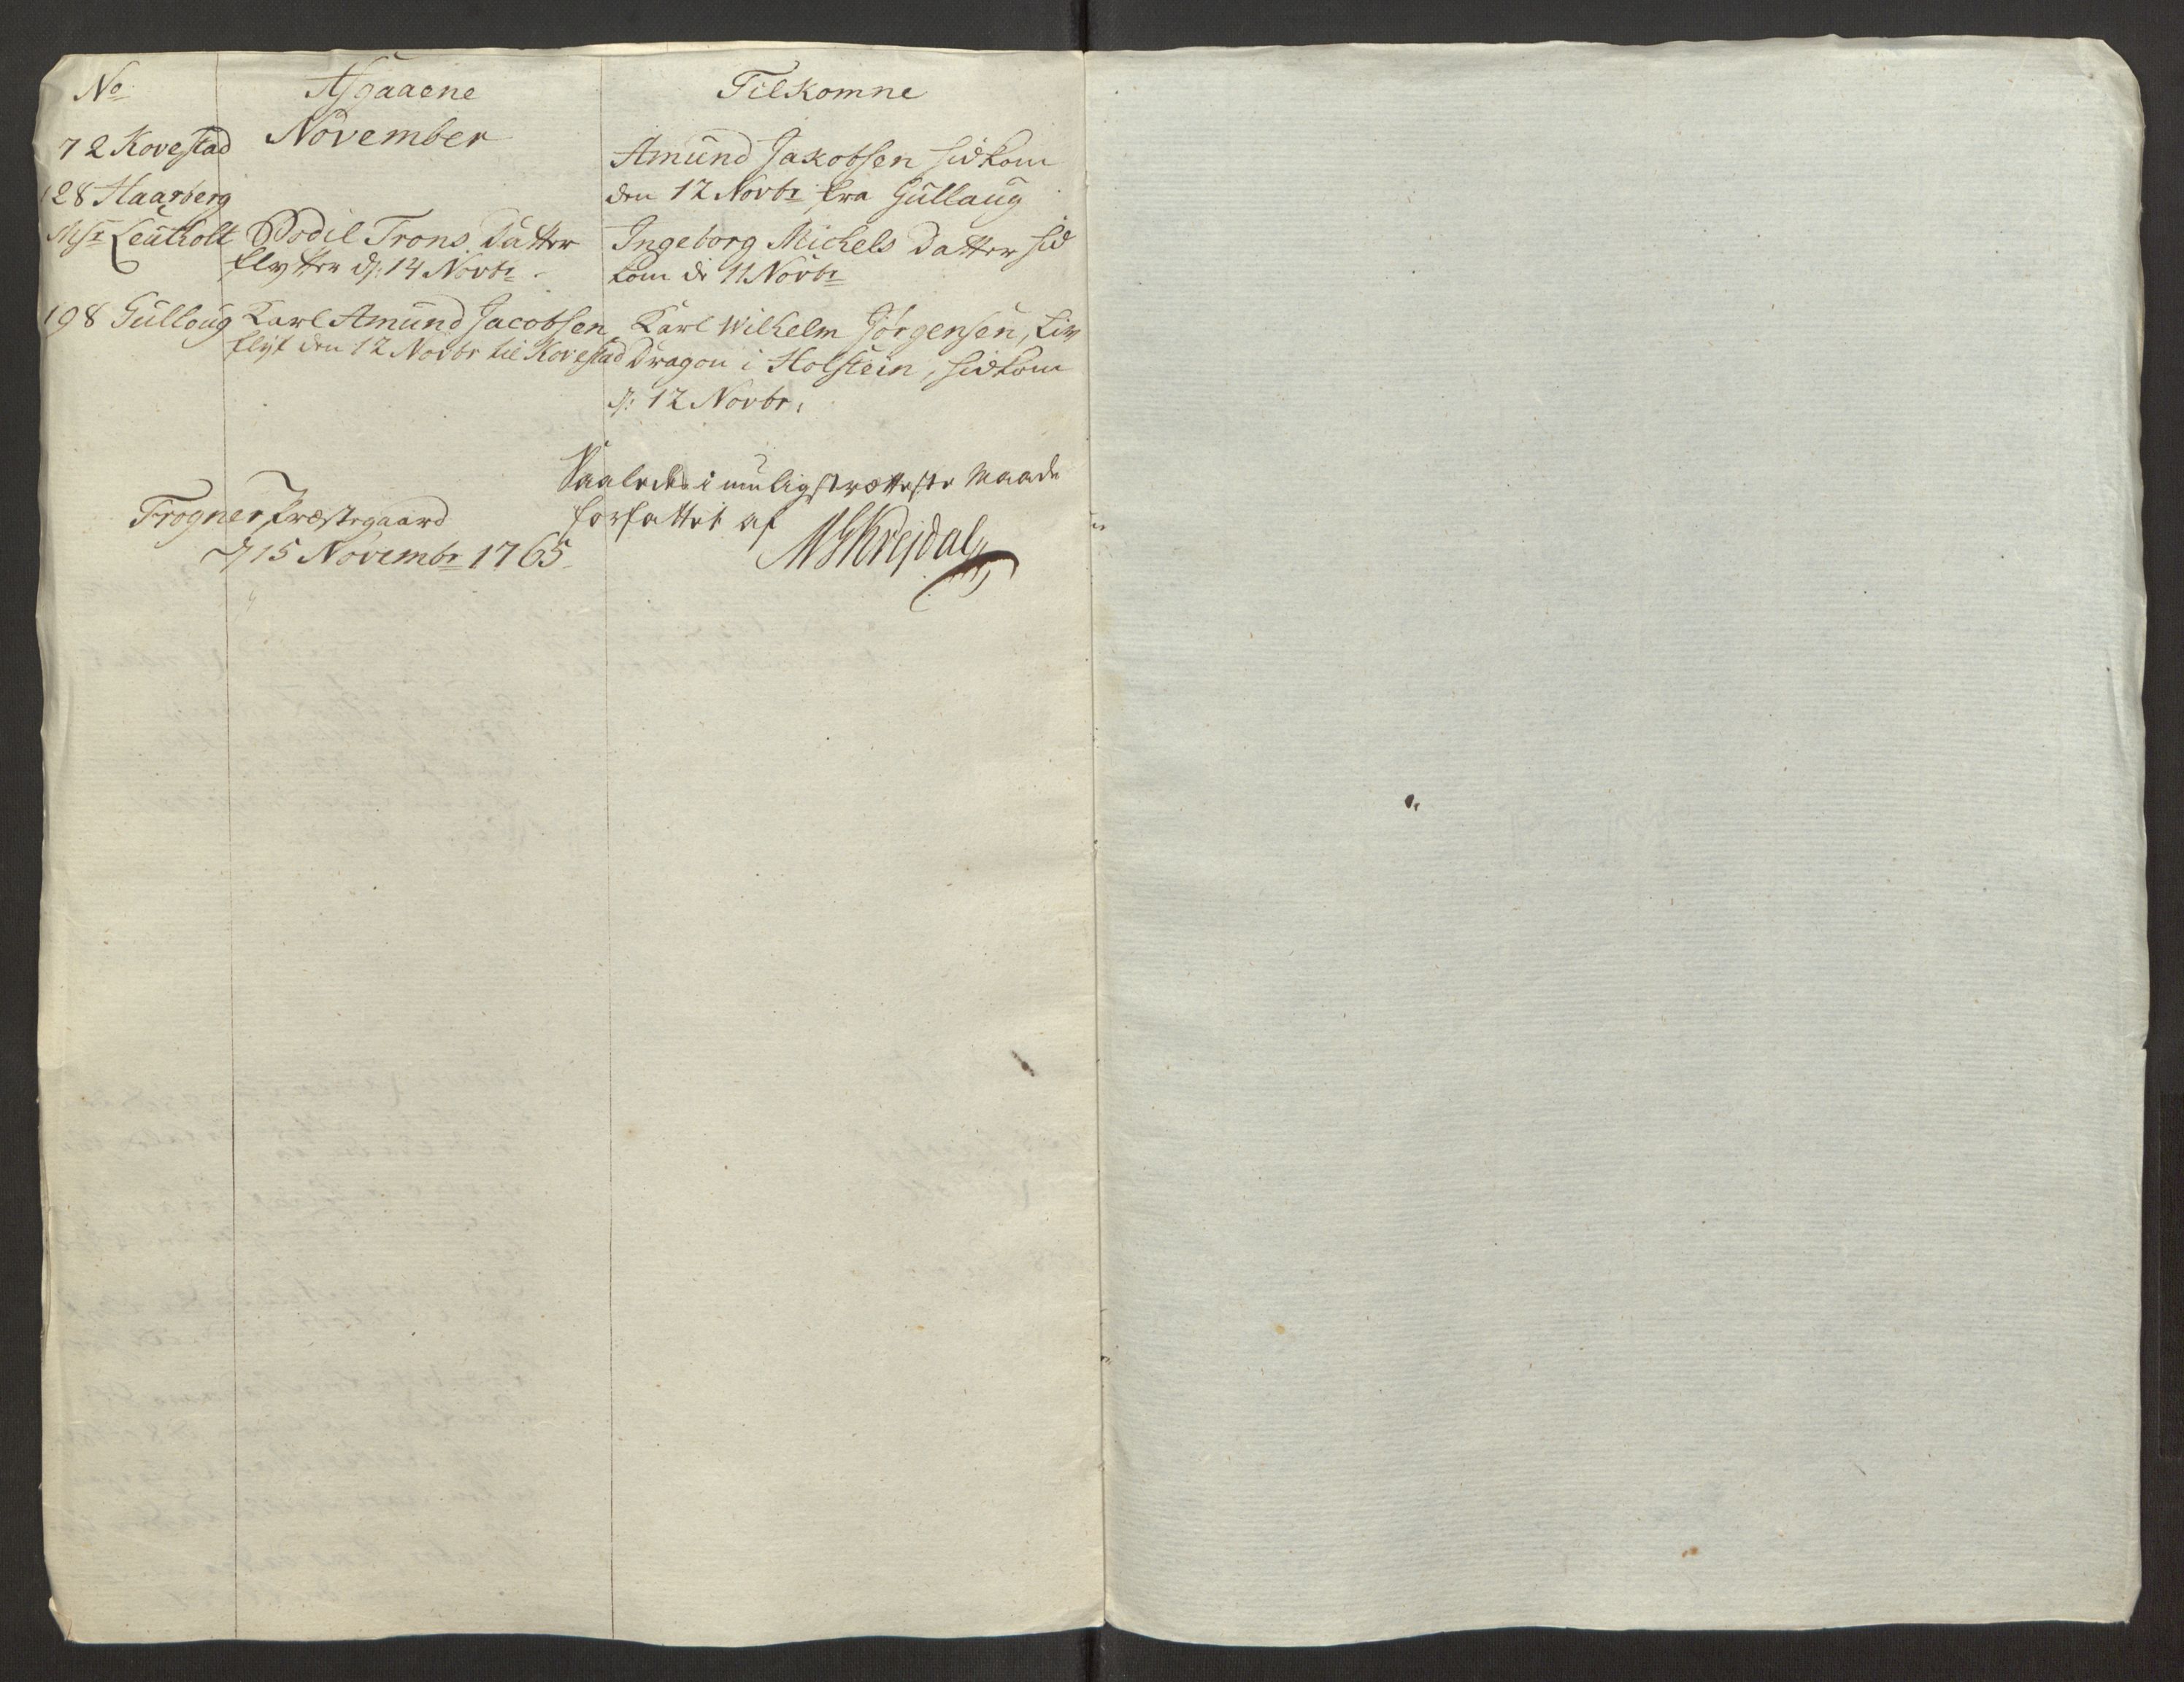 No Afgaaene Tilkomne
November
72 Kovestad Amund Jakobsen hidkom
den 12 Novbr fra Gullaug
128 Haarberg
Msr Leutholt Bodil Trons Datter Ingeborg Michels Datter hid
flytter d: 14 Novbr. kom d: 11 Novbr
198 Gulloug Karl Amund Jacobsen Karl Wilhelm Jörgensen, Liv
flyt den 12 Novbr til Kovestad Dragon i Holstein, hidkom
d: 12 Novbr.
Saaledes i muligst rætteste Maade
Frogner Præstegaard forfattet af
d 15 Novembr 1765.